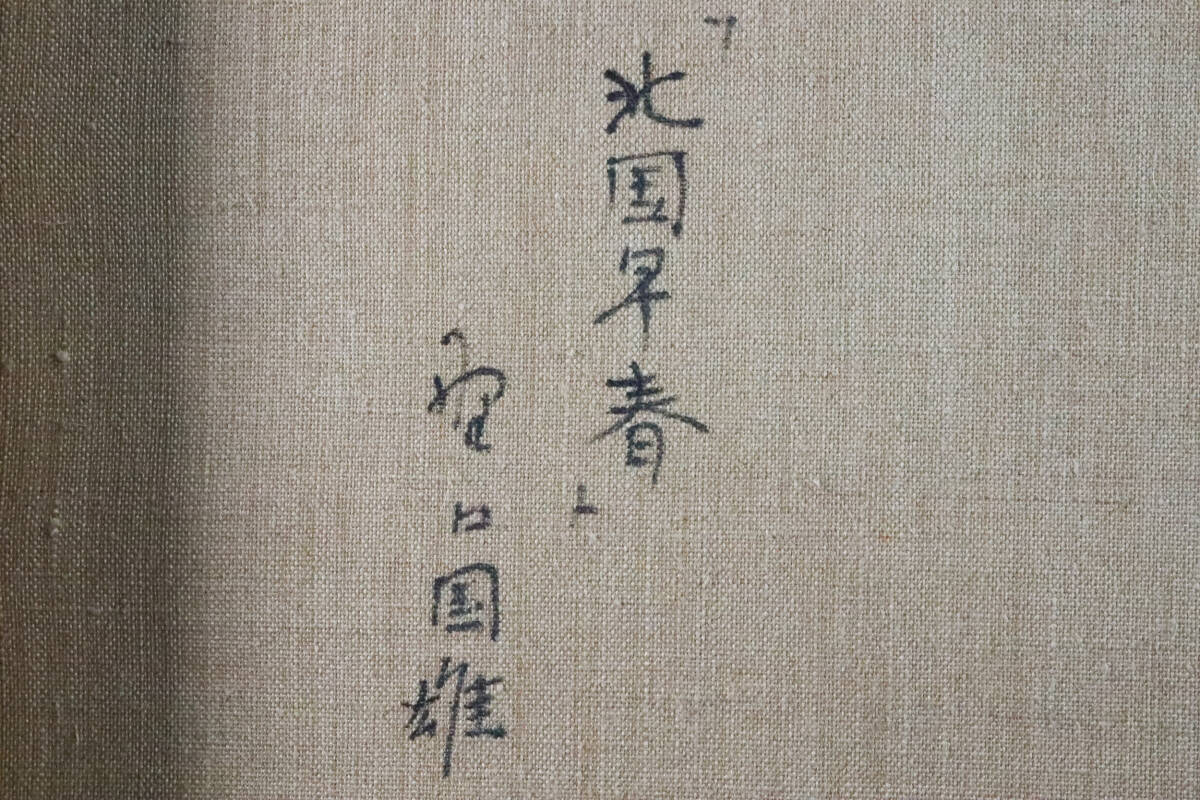 「北国早春」
口国雄